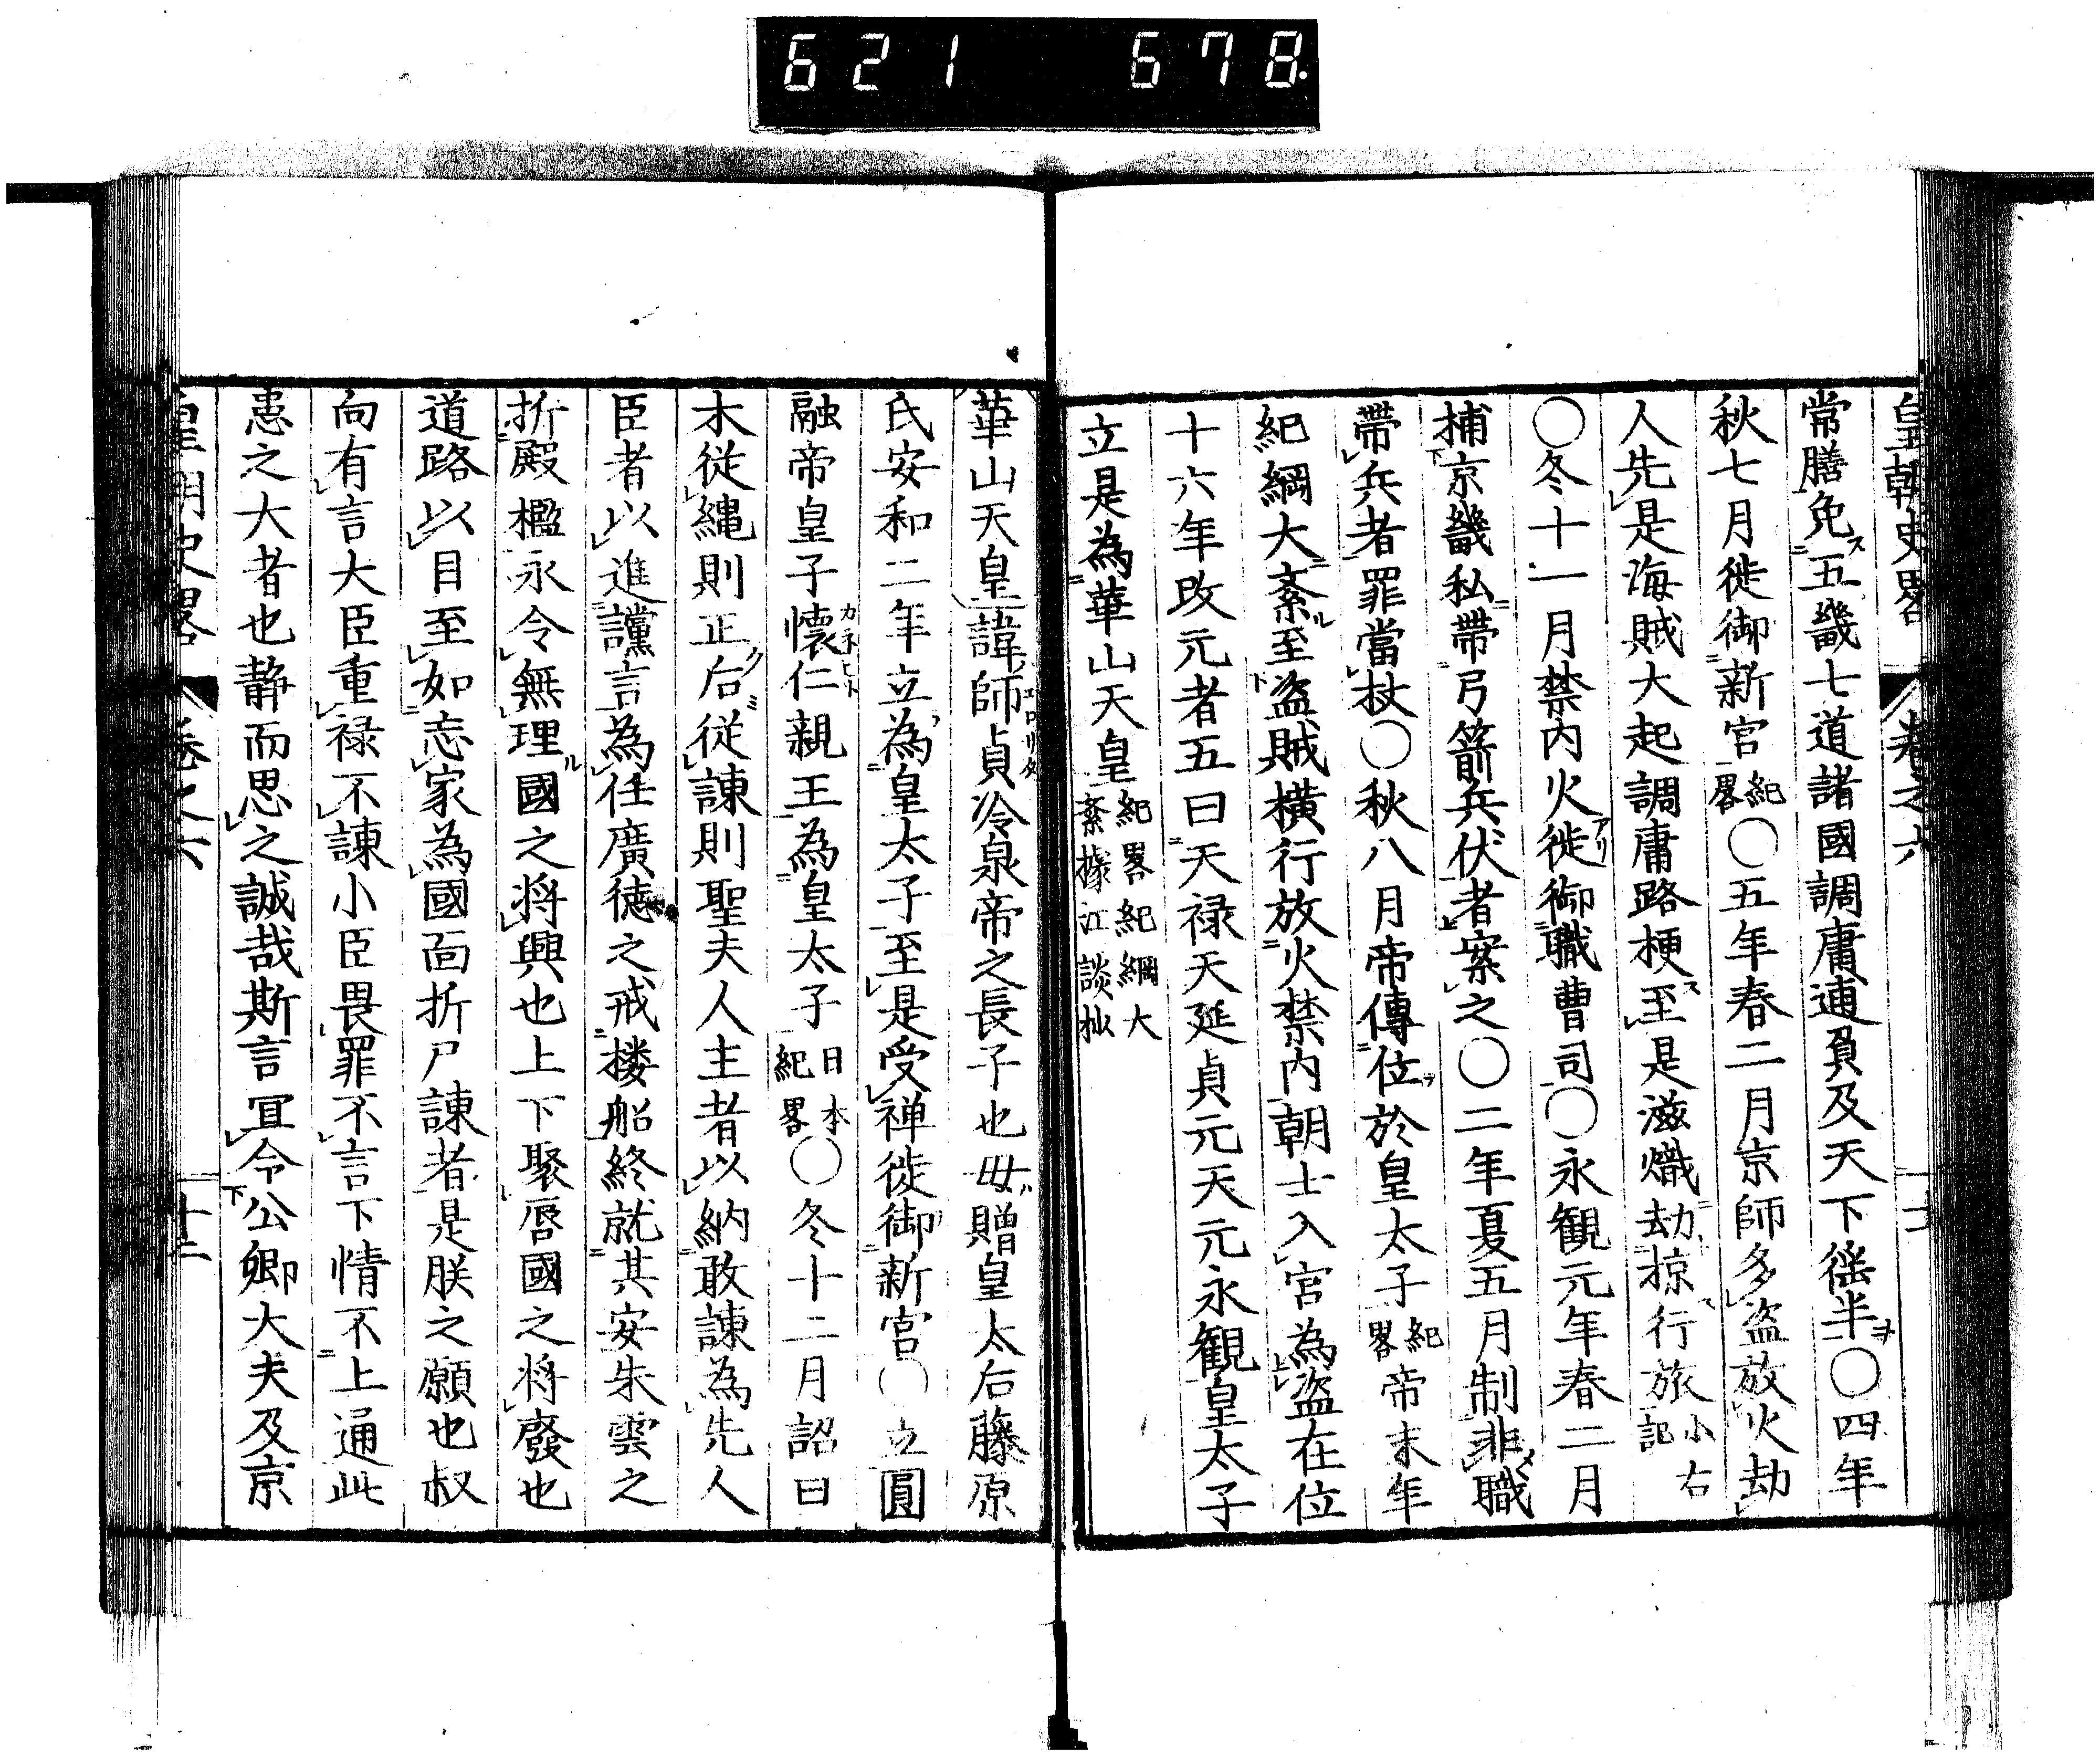 621 678
皇朝史畧 卷之六 十二
常膳免五畿七道諸國調庸逋負及天下徭半〇四年
秋七月徙御新宮紀畧〇五年春二月京師多盗放火劫
人先是海賊大起調庸路梗至是滋熾劫掠行旅小右記
〇冬十一月禁内火徙御職曹司〇永観元年春二月
捕京畿私帶弓箭兵伏者案之〇二年夏五月制非職
帶兵者罪當杖〇秋八月帝傳位於皇太子紀畧帝末年
紀綱大紊至盗賊横行放火禁内朝士入宮為盗在位
十六年改元者五曰天禄天延貞元天元永観皇太子
立是為華山天皇紀畧紀綱大紊據江談抄
華山天皇諱師貞冷泉帝之長子也母贈皇太后藤原
氏安和二年立為皇太子至是受禅徙御新宮〇立圓
融帝皇子懐仁親王為皇太子日本紀畧〇冬十二月詔曰
木従縄則正后従諫則聖夫人主者以納敢諫為先人
臣者以進讜言為任廣徳之戒楼船終就其安朱雲之
折殿檻永令無理國之将興也上下聚唇國之将廢也
道路以目至如忘家為國面折尸諫者是朕之願也叔
向有言大臣重禄不諫小臣畏罪不言下情不上通此
恚之大者也静而思之誠哉斯言冝令公卿大夫及京
皇朝史畧 卷之六 十三